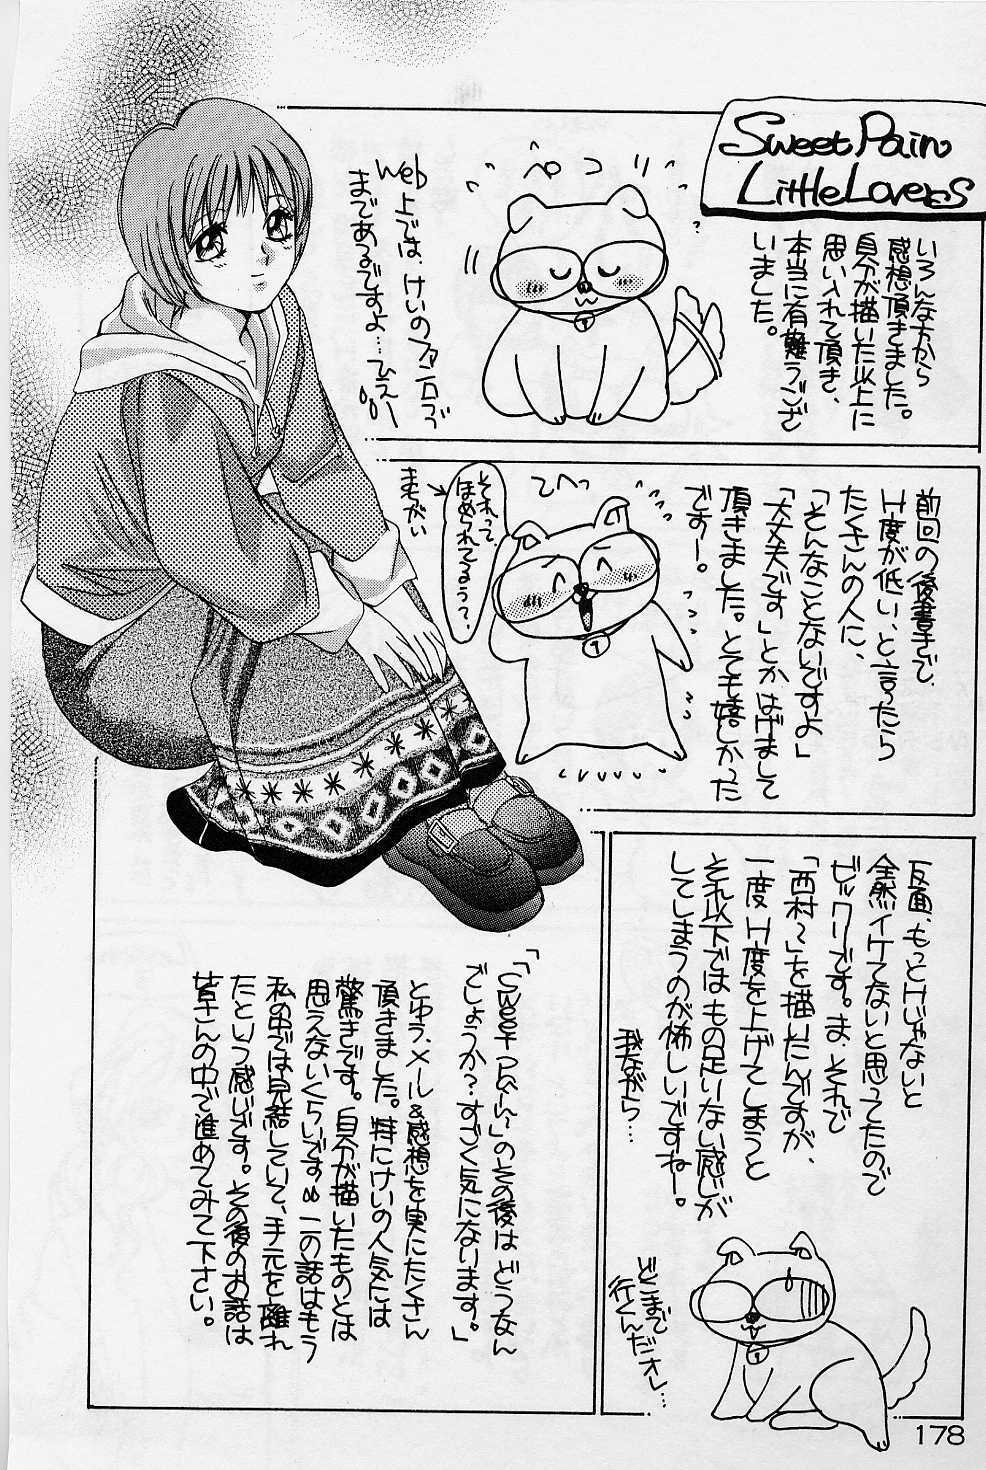 Sweet Pain
Little Lovers
いろんな方から
感想頂きました。
自分が描いた以上に
思い入れて頂き、
本当に有難うござ
いました。
ペコリ
Web上では、けいのファン石づ
まであるですよ…ひえー
前回の後書きで、
H度が低い、と言ったら
たくさんの人に、
「そんなことないですよ」
「大丈夫です」とかはげまして
頂きました。とても嬉しかった
ですー。
てへっ
それって、
ほめられてるぅ?、
まちがい
反面、もっとHじゃないと
全然イケてないと思ってたので
ビックリです。ま、それで
「西村~」を描いたんですが、
一度H度を上げてしまうと
それ以下ではもの足りない感じが
してしまうのが怖しいですねー。
我ながら…
どこまで
行くんだオレ…
「「Sweet Pain~」のその後はどうなん
でしょうか?すごく気になります。」
とゆう、メール&感想を実にたくさん
頂きました。特にけいの人気には
驚きです。自分が描いたものとは
思えないくらいです。この話はもう
私の中では完結していて、手元を離れ
たという感じです。その後のお話は
皆さんの中で進めてみて下さい。
178